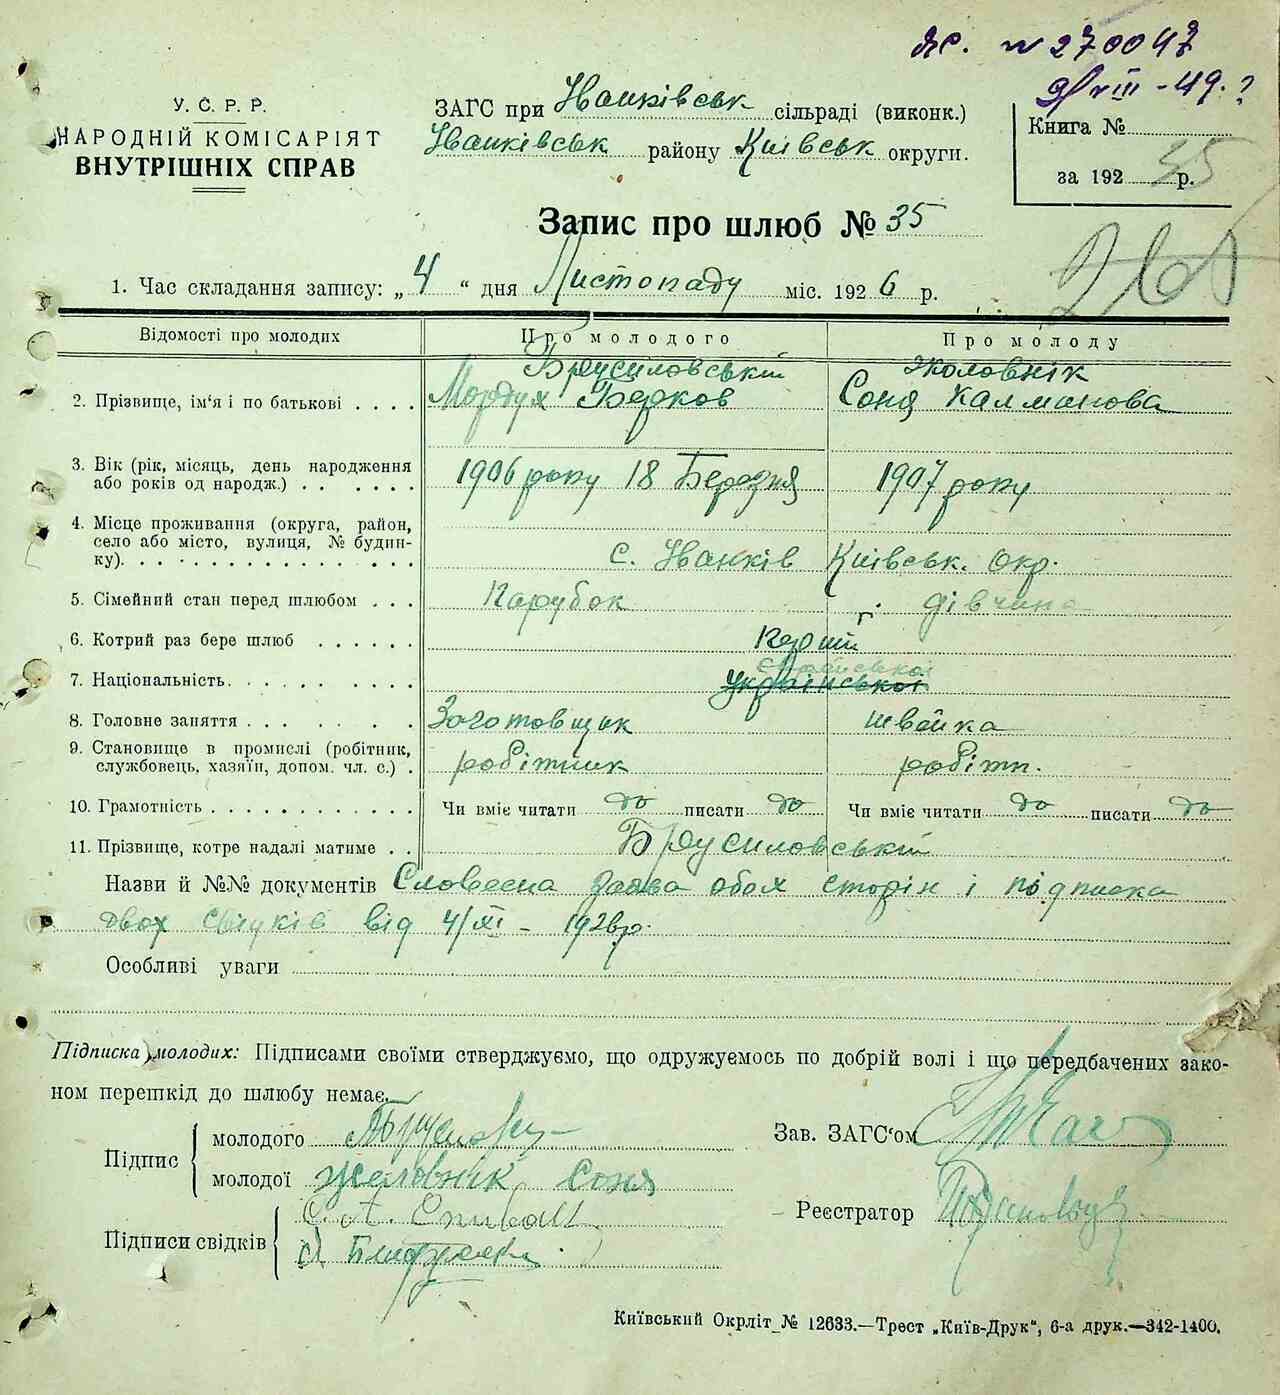 ЯС. № 270047
9/VIII - 49.
У. С. Р. Р.
НАРОДНІЙ КОМІСАРІЯТ
ВНУТРІШНІХ СПРАВ
ЗАГС при Іванківськ сільраді (виконк.)
Іванківськ району Київськ округи.
Книга №
за 192 р.
35
Запис про шлюб № 35
1. Час складання запису: „ 4 “ дня Листопаду міс. 192 6 р.
Відомості про молодих
Про молодого
Про молоду
2. Прізвище, ім‘я і по батькові . . . .
Брусиловській
Мордух Берков
Жоловнік
Соня Калманова
3. Вік (рік, місяць, день народження
або років од народж.) . . . . . . .
1906 року 18 Березня
1907 року
4. Місце проживання (округа, район,
село або місто, вулиця, № будин-
ку). . . . . . . . . . . . . . .
с. Іванків Київськ. Окр.
5. Сімейний стан перед шлюбом . . .
Парубок
дівчина
6. Котрий раз бере шлюб . . . . . .
Перший
7. Національність. . . . . . . . . .
Єврейської
Української
8. Головне заняття . . . . . . . .
Заготовщик
швейка
9. Становище в промислі (робітник,
службовець, хазяїн, допом. чл. с.) .
робітник
робітн.
10. Грамотність . . . . . . . . . . .
Чи вміє читати до писати до
Чи вміє читати до писати до
11. Прізвище, котре надалі матиме . .
Брусиловській
Назви й №№ документів Словесна заява обох сторін і підписка
двох свідків від 4/XI - 1926р.
Особливі уваги
Підписка молодих: Підписами своїми стверджуємо, що одружуємось по добрій волі і що передбачених зако-
ном перешкід до шлюбу немає.
Підпис
молодого
молодої Желовнік Соня
Підписи свідків
Зав. ЗАГС‘ом
Реєстратор
Київський Окрліт № 12633.—Трест „Київ-Друк“, 6-а друк.—342-1400.